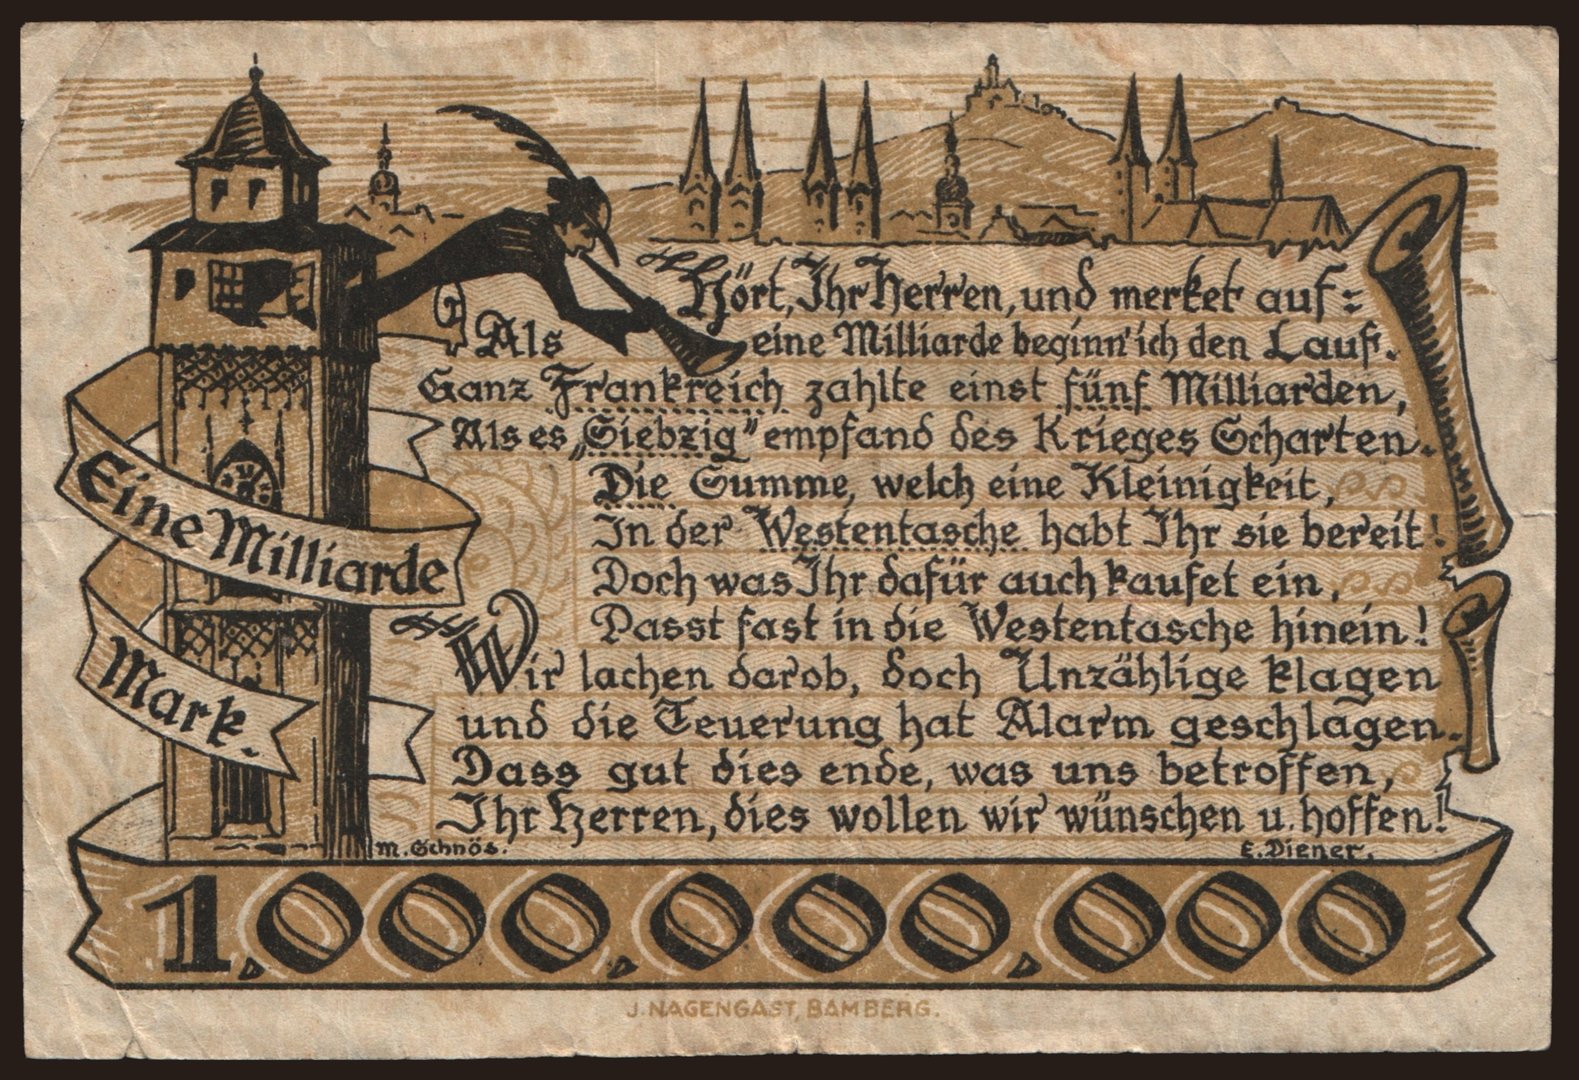 Hört, Ihr Herren, und merket auf:
Als eine Milliarde beginn' ich den Lauf.
Ganz Frankreich zahlte einst fünf Milliarden,
Als es „Siebzig" empfand des Krieges Scharten.
Die Summe, welch eine Kleinigkeit,
In der Westentasche habt Ihr sie bereit!
Doch was Ihr dafür auch kaufet ein,
Passt fast in die Westentasche hinein!
Wir lachen darob, doch Unzählige klagen
und die Teuerung hat Alarm geschlagen.
Dass gut dies ende, was uns betroffen,
Ihr Herren, dies wollen wir wünschen u. hoffen!
Eine Milliarde
Mark.
M. Schnös.
E. Diener.
1.000.000.000
J. NAGENGAST, BAMBERG.